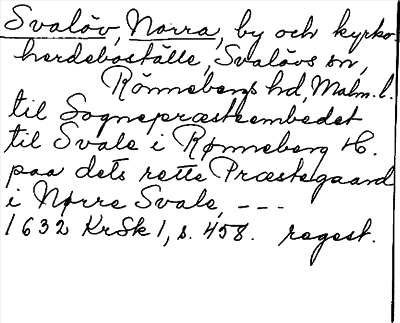 Svalöv, Norra, by och kyrko-
herdeboställe, Svalövs sn,
Rönnebergs hd, Malm. l.
til Sognepræsteembedet
til Svale i Rønneberg H.
paa dets rette Præstegaard
i Nørre Svale, ---
1632 KrSk 1, s. 458. regest.